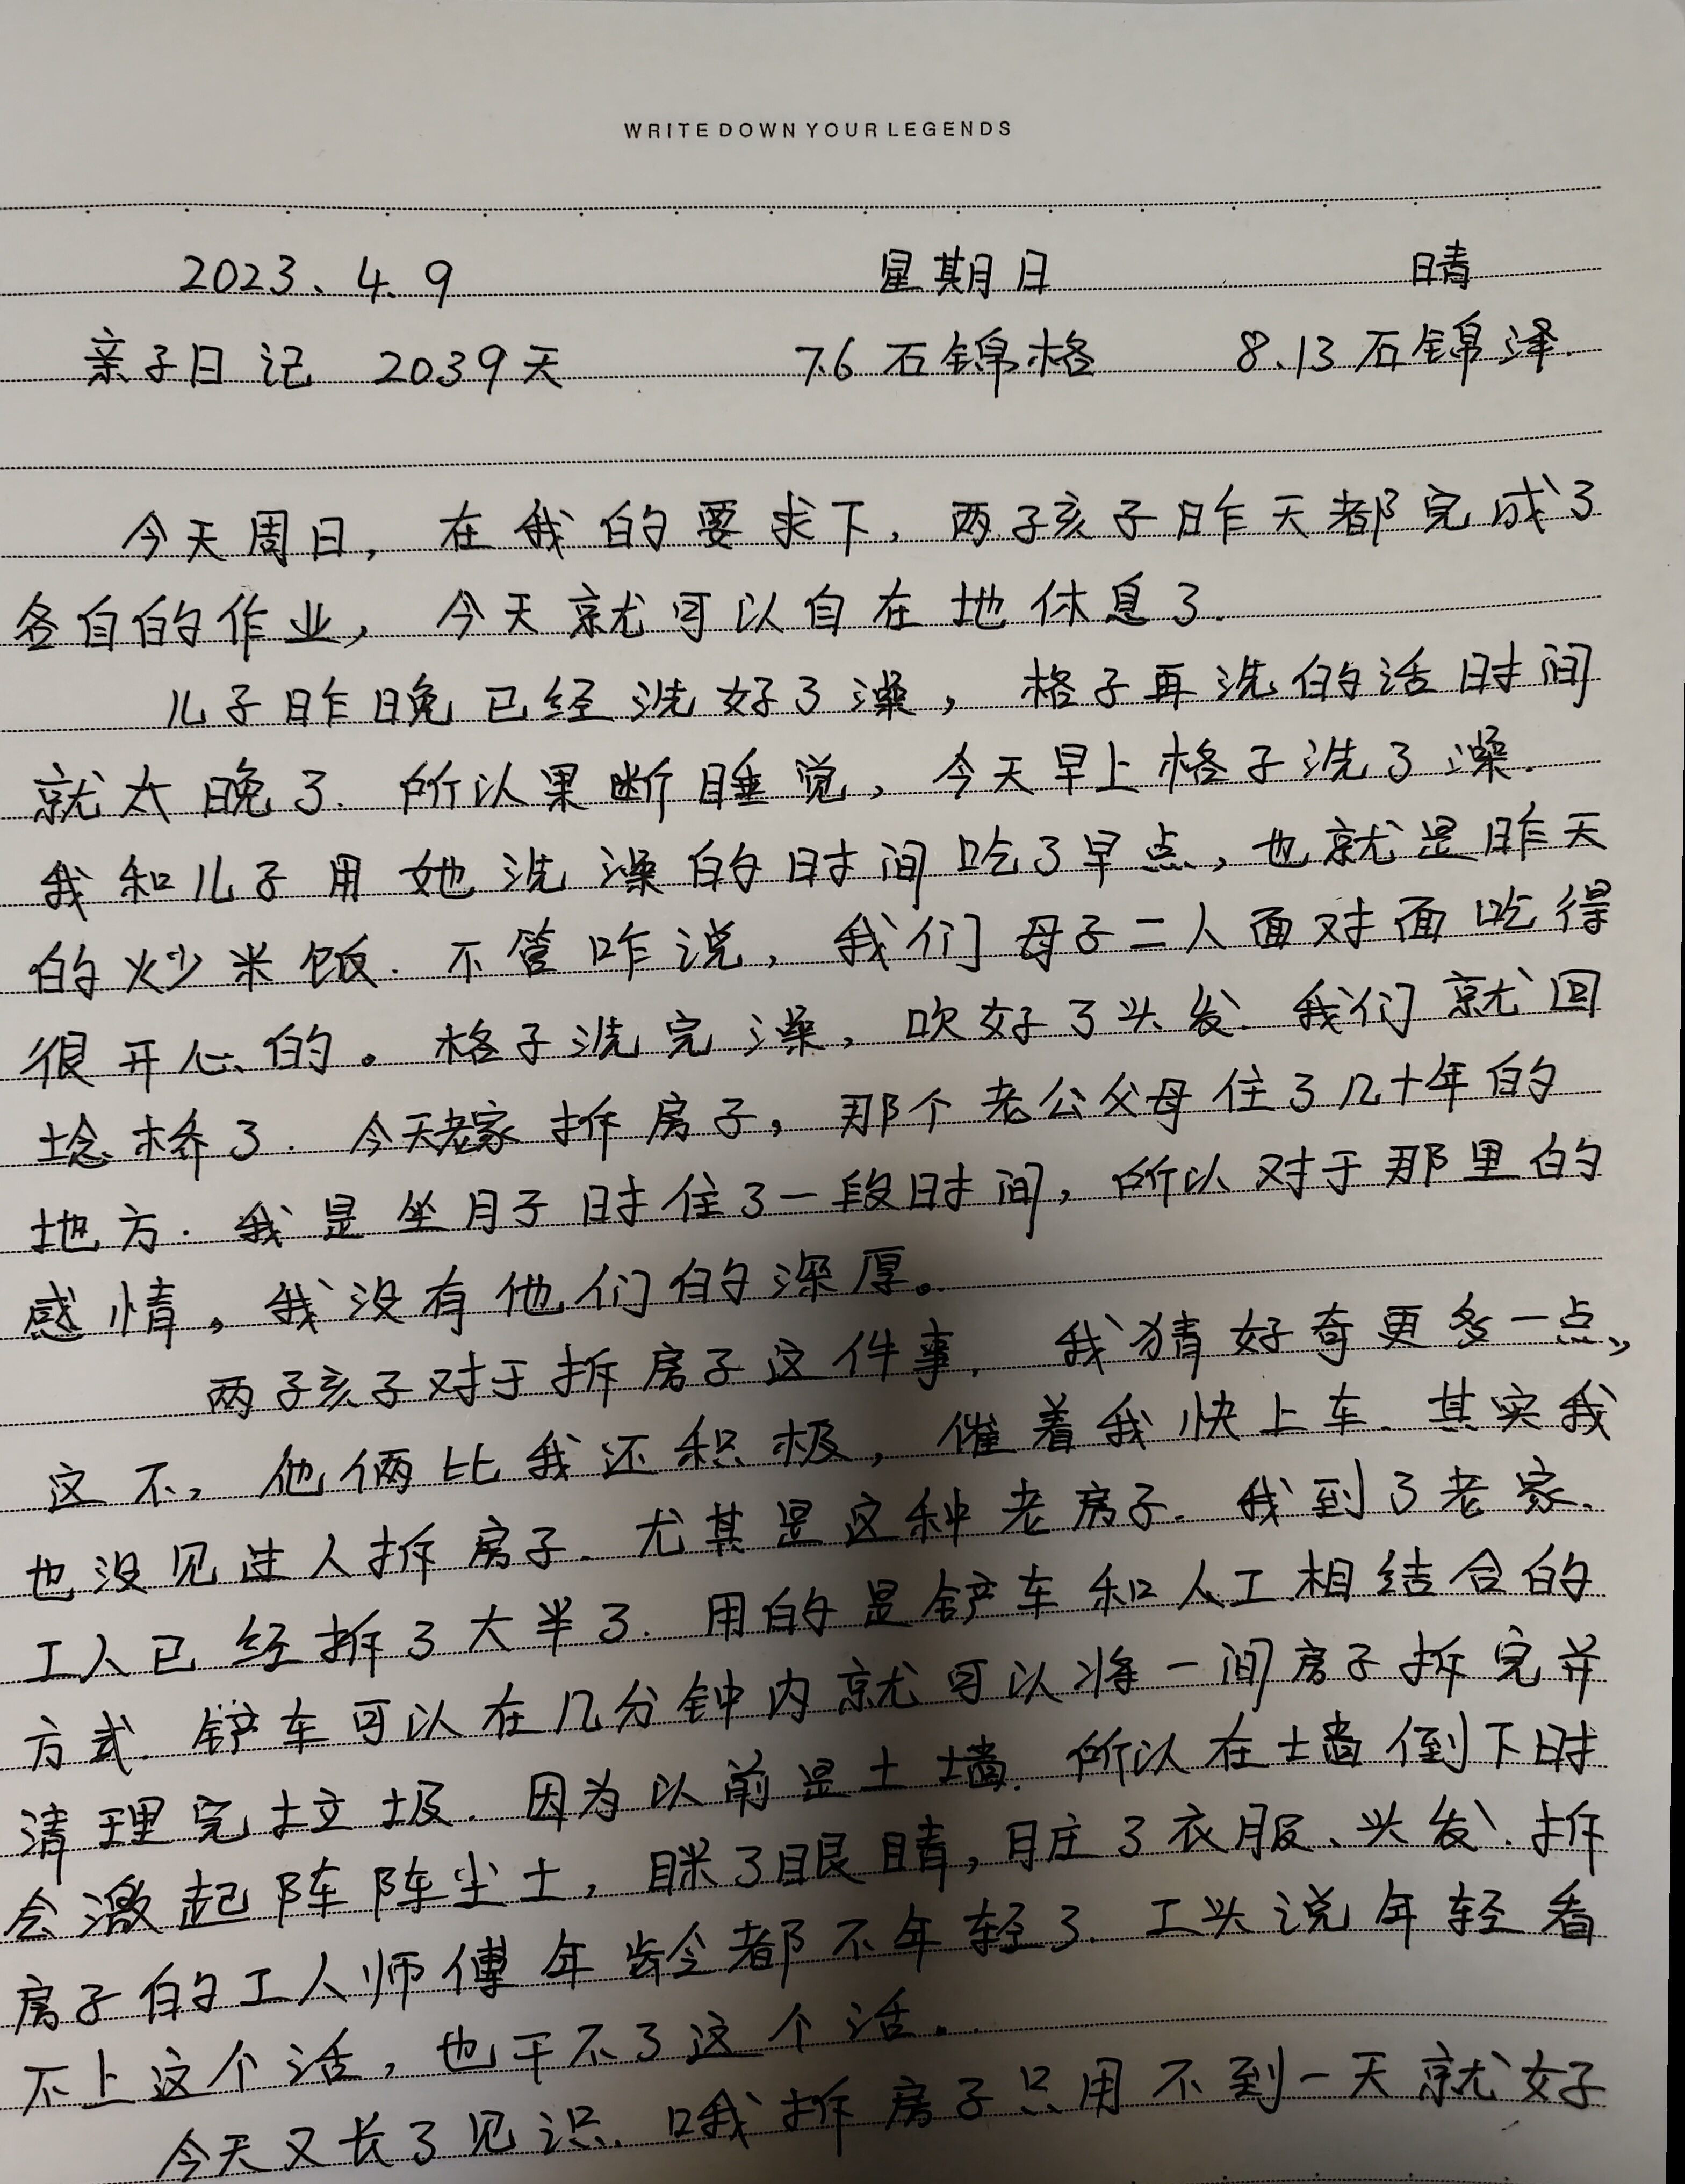 WRITE DOWN YOUR LEGENDS
2023、4、9 星期日 晴
亲子日记 2039天 7.6石锦格 8.13石锦泽.
今天周日，在我的要求下，两孩子昨天都完成了
各自的作业，今天就可以自在地休息了.
儿子昨晚已经洗好了澡，格子再洗的话时间
就太晚了.所以果断睡觉，今天早上格子洗了澡.
我和儿子用她洗澡的时间吃了早点，也就是昨天
的炒米饭.不管咋说，我们母子二人面对面吃得
很开心的。格子洗完澡，吹好了头发.我们就回
埝桥了.今天老家拆房子，那个老公父母住了几十年的
地方.我是坐月子时住了一段时间，所以对于那里的
感情，我没有他们的深厚。
两孩子对于拆房子这件事，我猜好奇更多一点，
这不，他俩比我还积极，催着我快上车.其实我
也没见过人拆房子.尤其是这种老房子.我到了老家.
工人已经拆了大半了.用的是铲车和人工相结合的
方式.铲车可以在几分钟内就可以将一间房子拆完并
清理完垃圾.因为以前是土墙.所以在土墙倒下时
会激起阵阵尘土，眯了眼睛，脏了衣服、头发.拆
房子的工人师傅年龄都不年轻了.工头说年轻看
不上这个活，也干不了这个活.
今天又长了见识.哦拆房子只用不到一天就好